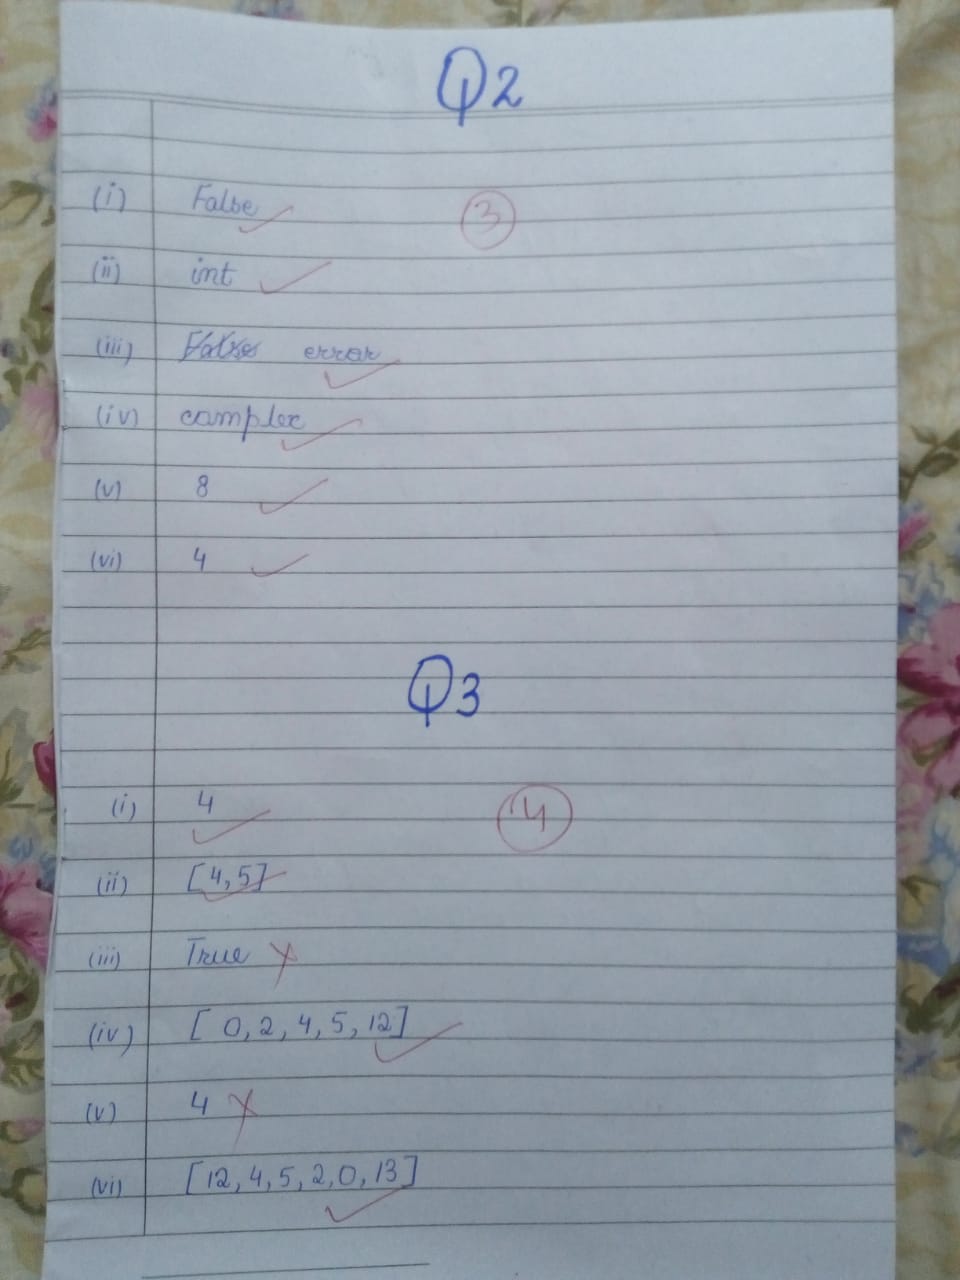 Q2
(i) False
3
(ii) int
(iii) False error
(iv) complex
(v) 8
(vi) 4
Q3
(i) 4
4
(ii) [4,5]
(iii) True
(iv) [ 0, 2, 4, 5, 12]
(v) 4
(vi) [12, 4, 5, 2, 0, 13]